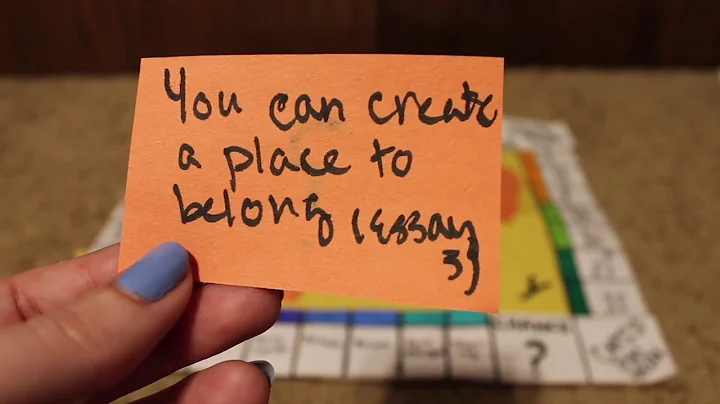 You can create
a place to
belong (essay
3)
CHANCE
?